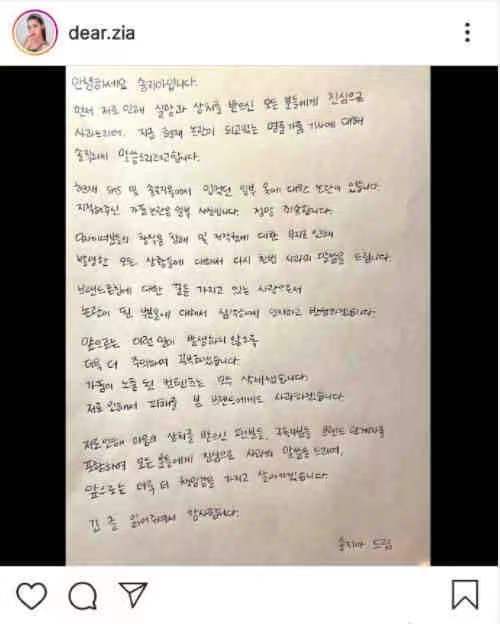 dear.zia
안녕하세요 송지아입니다.
먼저 저로 인해 실망과 상처를 받으신 모든 분들에게 진심으로
사과드리며, 지금 현재 논란이 되고있는 명품가품 기사에 대해
솔직하게 말씀드리려고합니다.
현재 SNS 및 솔로지옥에서 입었던 일부 옷에 대한 논란이 있습니다.
지적해주신 가품논란은 일부 사실입니다. 정말 죄송합니다.
디자이너분들의 창작물 침해 및 저작권에 대한 무지로 인해
발생한 모든 상황들에 대해서 다시 한번 사과의 말씀을 드립니다.
브랜드론칭에 대한 꿈을 가지고 있는 사람으로서
논란이 된 부분들에 대해서 심각하게 인지하고 반성하겠습니다.
앞으로는 이런 일이 발생하지 않도록
더욱 더 주의하며 공부하겠습니다.
가품이 노출 된 컨텐츠는 모두 삭제했습니다.
저로 인해서 피해를 본 브랜드에게도 사과하겠습니다.
저로인해 마음의 상처를 받으신 팬분들, 구독자분들 브랜드 관계자를
포함하여 모든 분들에게 진심으로 사과의 말씀을 드리며,
앞으로는 더욱 더 책임감을 가지고 살아가겠습니다.
긴 글 읽어주셔서 감사합니다.
송지아 드림